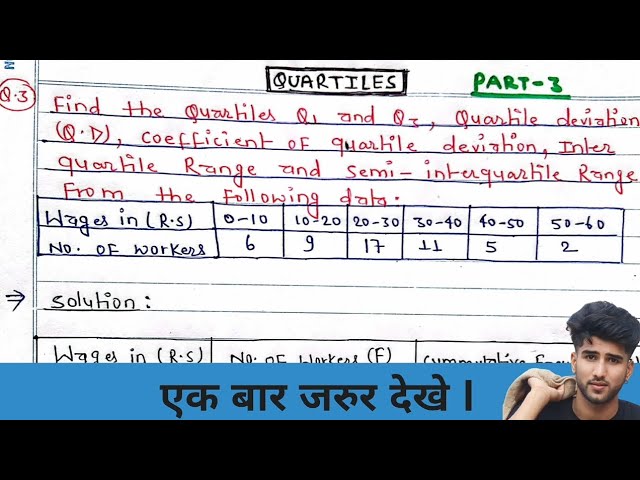 QUARTILES PART-3
Q.3 Find the Quartiles Q₁ and Q₃, Quartile deviation
(Q.D), coefficient of quartile deviation, Inter
quartile Range and semi-interquartile Range
From the following data.
Wages in (R.S) 0-10 10-20 20-30 30-40 40-50 50-60
No. of workers 6 9 17 11 5 2
⇒ Solution:
Wages in (R.S) No. of workers (F)
एक बार जरुर देखे ।